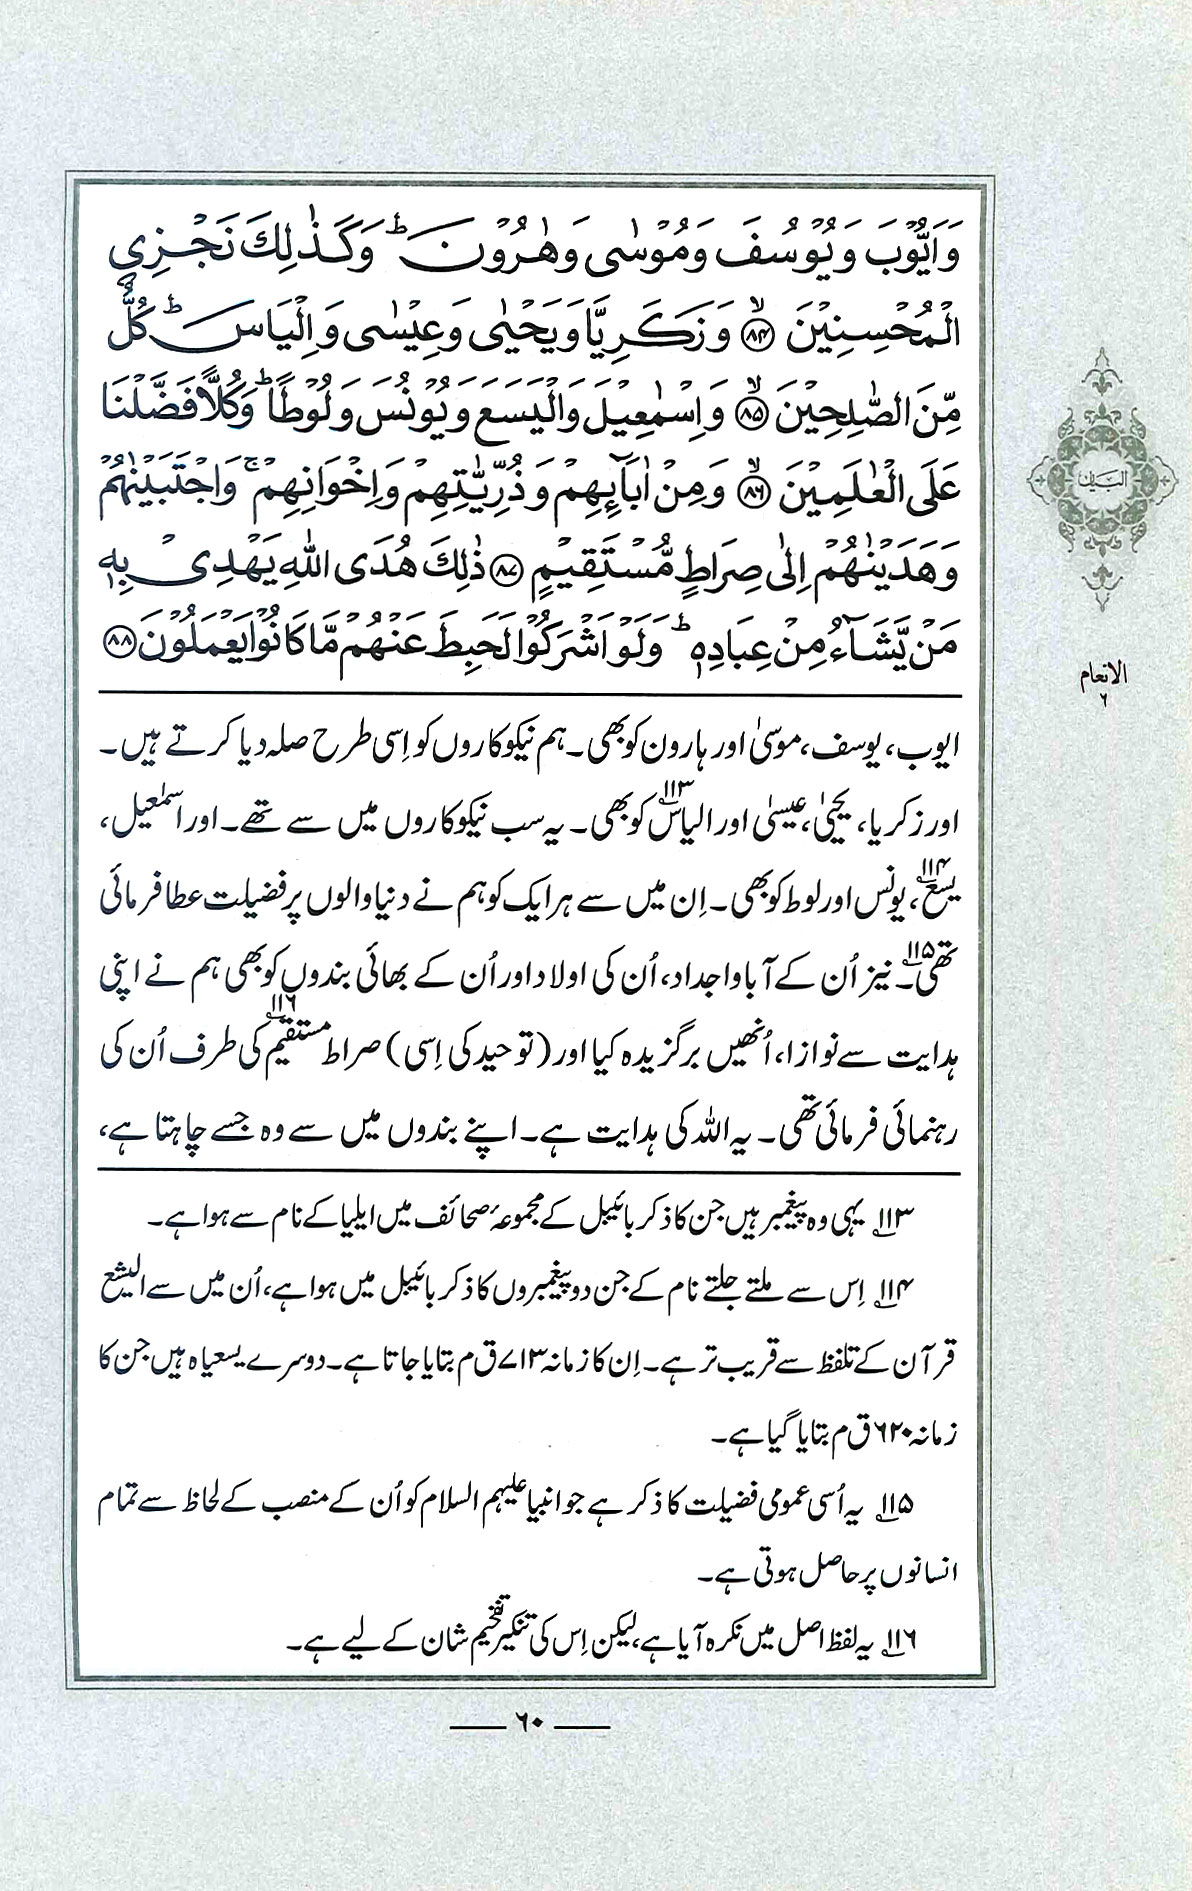 وَاَيُّوْبَ وَيُوْسُفَ وَمُوْسٰى وَهٰرُوْنَ ؕ وَكَذٰلِكَ نَجْزِي
الْمُحْسِنِيْنَ ﴿۸۴﴾ۙ وَزَكَرِيَّا وَيَحْيٰى وَعِيْسٰى وَاِلْيَاسَ ؕ كُلٌّ
مِّنَ الصّٰلِحِيْنَ ﴿۸۵﴾ۙ وَاِسْمٰعِيْلَ وَالْيَسَعَ وَيُوْنُسَ وَلُوْطًا ؕ وَكُلًّا فَضَّلْنَا
عَلَى الْعٰلَمِيْنَ ﴿۸۶﴾ۙ وَمِنْ اٰبَآئِهِمْ وَذُرِّيّٰتِهِمْ وَاِخْوَانِهِمْ ۚ وَاجْتَبَيْنٰهُمْ
وَهَدَيْنٰهُمْ اِلٰى صِرَاطٍ مُّسْتَقِيْمٍ ﴿۸۷﴾ ذٰلِكَ هُدَى اللّٰهِ يَهْدِيْ بِهٖ
مَنْ يَّشَآءُ مِنْ عِبَادِهٖ ؕ وَلَوْ اَشْرَكُوْا لَحَبِطَ عَنْهُمْ مَّا كَانُوْا يَعْمَلُوْنَ ﴿۸۸﴾
ایوب، یوسف، موسیٰ اور ہارون کو بھی۔ ہم نیکوکاروں کو اِسی طرح صلہ دیا کرتے ہیں۔
اور زکریا، یحییٰ، عیسیٰ اور الیاس۱۱۳ کو بھی۔ یہ سب نیکوکاروں میں سے تھے۔ اور اسمٰعیل،
یسع۱۱۴، یونس اور لوط کو بھی۔ اِن میں سے ہر ایک کو ہم نے دنیا والوں پر فضیلت عطا فرمائی
تھی۱۱۵۔ نیز اُن کے آبا و اجداد، اُن کی اولاد اور اُن کے بھائی بندوں کو بھی ہم نے اپنی
ہدایت سے نوازا، اُنھیں برگزیدہ کیا اور (توحید کی اِسی) صراط مستقیم۱۱۶ کی طرف اُن کی
رہنمائی فرمائی تھی۔ یہ اللہ کی ہدایت ہے۔ اپنے بندوں میں سے وہ جسے چاہتا ہے،
۱۱۳ یہی وہ پیغمبر ہیں جن کا ذکر بائیبل کے مجموعۂ صحائف میں ایلیا کے نام سے ہوا ہے۔
۱۱۴ اِس سے ملتے جلتے نام کے جن دو پیغمبروں کا ذکر بائیبل میں ہوا ہے، اُن میں سے الیشع
قرآن کے تلفظ سے قریب تر ہے۔ اِن کا زمانہ ۷۱۳ ق م بتایا جاتا ہے۔ دوسرے یسعیاہ ہیں جن کا
زمانہ ۶۲۰ ق م بتایا گیا ہے۔
۱۱۵ یہ اُسی عمومی فضیلت کا ذکر ہے جو انبیا علیہم السلام کو اُن کے منصب کے لحاظ سے تمام
انسانوں پر حاصل ہوتی ہے۔
۱۱۶ یہ لفظ اصل میں نکرہ آیا ہے، لیکن اِس کی تنکیر تفخیم شان کے لیے ہے۔
۶۰
البیان
الانعام
۶